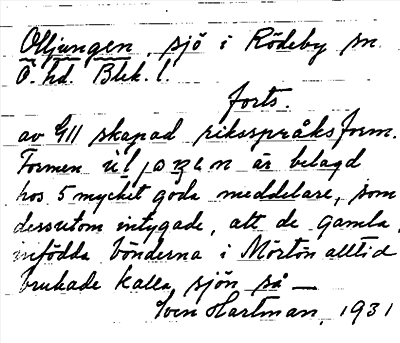 Älljungen, sjö i Rödeby sn.
Ö. hd. Blek. l.
forts.
av GII skapad riksspråksform.
Formen är belagd
hos 5 mycket goda meddelare, som
dessutom intygade, att de gamla,
infödda bönderna i Mörtön alltid
brukade kalla sjön så —
Sven Hartman, 1931